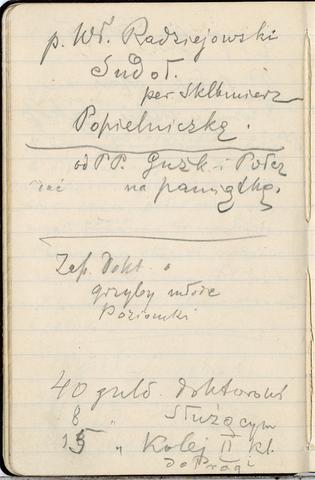 p. Wł. Radziejowski
Sudoł.
per Sklbmierz
Popielniczkę.
od PP. Guzk. i Połcz
na pamiątkę.
Zap. Dokt. o
grzyby młode
Poziomki
40 guld. Doktorowi
8 " Służącym
15 " Kolej II kl.
do Pragi